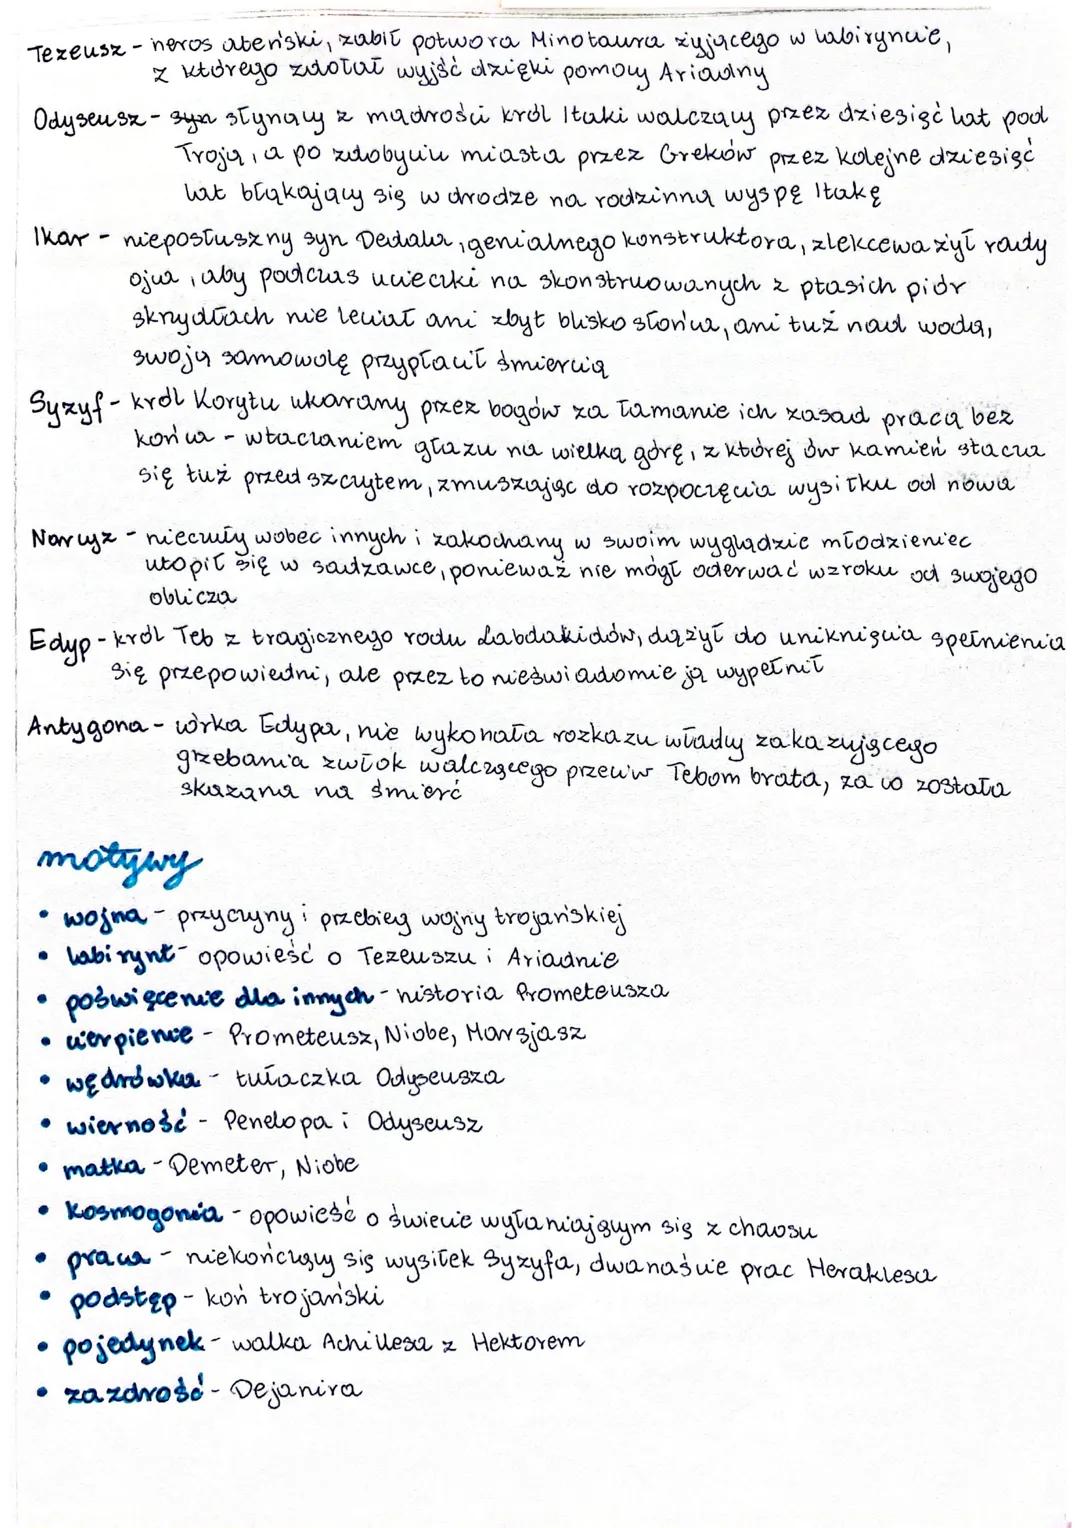 Tezeusz - heros ateński, zabił potwora Minotaura żyjącego w labiryncie,
z którego zdołał wyjść dzięki pomocy Ariadny
Odyseusz - syn słynący z mądrości król Itaki walczący przez dziesięć lat pod
Troją, a po zdobyciu miasta przez Greków przez kolejne dziesięć
lat błąkający się w drodze na rodzinną wyspę Itakę
Ikar - nieposłuszny syn Dedala, genialnego konstruktora, zlekceważył rady
ojca, aby podczas ucieczki na skonstruowanych z ptasich piór
skrzydłach nie leciał ani zbyt blisko słońca, ani tuż nad wodą,
swoją samowolę przypłacił śmiercią
Syzyf - król Koryntu ukarany przez bogów za łamanie ich zasad pracą bez
końca - wtaczaniem głazu na wielką górę, z której ów kamień stacza
się tuż przed szczytem, zmuszając do rozpoczęcia wysiłku od nowa
Narcyz - nieczuły wobec innych i zakochany w swoim wyglądzie młodzieniec
utopił się w sadzawce, ponieważ nie mógł oderwać wzroku od swojego
oblicza
Edyp - król Teb z tragicznego rodu Labdakidów, dążył do uniknięcia spełnienia
się przepowiedni, ale przez to nieświadomie ją wypełnił
Antygona - córka Edypa, nie wykonała rozkazu władcy zakazującego
grzebania zwłok walczącego przeciw Tebom brata, za co została
skazana na śmierć
motywy
• wojna - przyczyny i przebieg wojny trojańskiej
• labirynt - opowieść o Tezeuszu i Ariadnie
• poświęcenie dla innych - historia Prometeusza
• cierpienie - Prometeusz, Niobe, Marsjasz
• wędrówka - tułaczka Odyseusza
• wierność - Penelopa i Odyseusz
• matka - Demeter, Niobe
• kosmogonia - opowieść o świecie wyłaniającym się z chaosu
• praca - niekończący się wysiłek Syzyfa, dwanaście prac Heraklesa
• podstęp - koń trojański
• pojedynek - walka Achillesa z Hektorem
• zazdrość - Dejanira